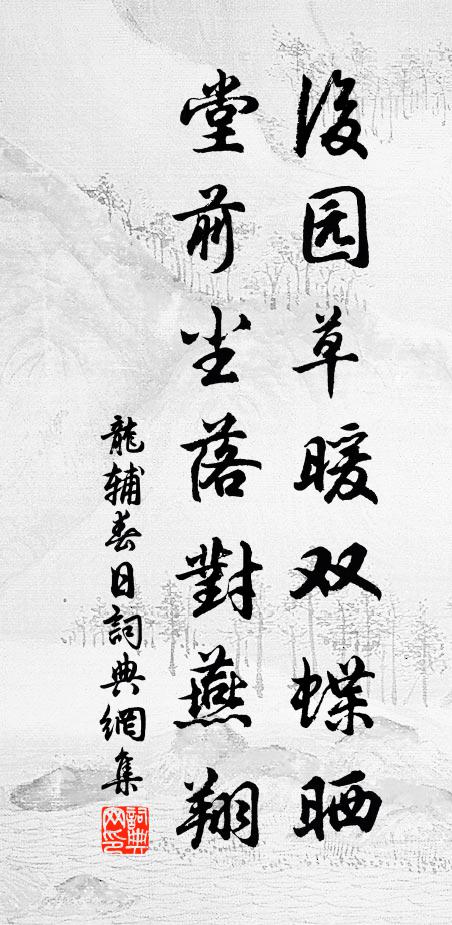 後园草暖双蝶晒
堂前尘落對燕翔
龍辅春日詞典網集
詞典网印